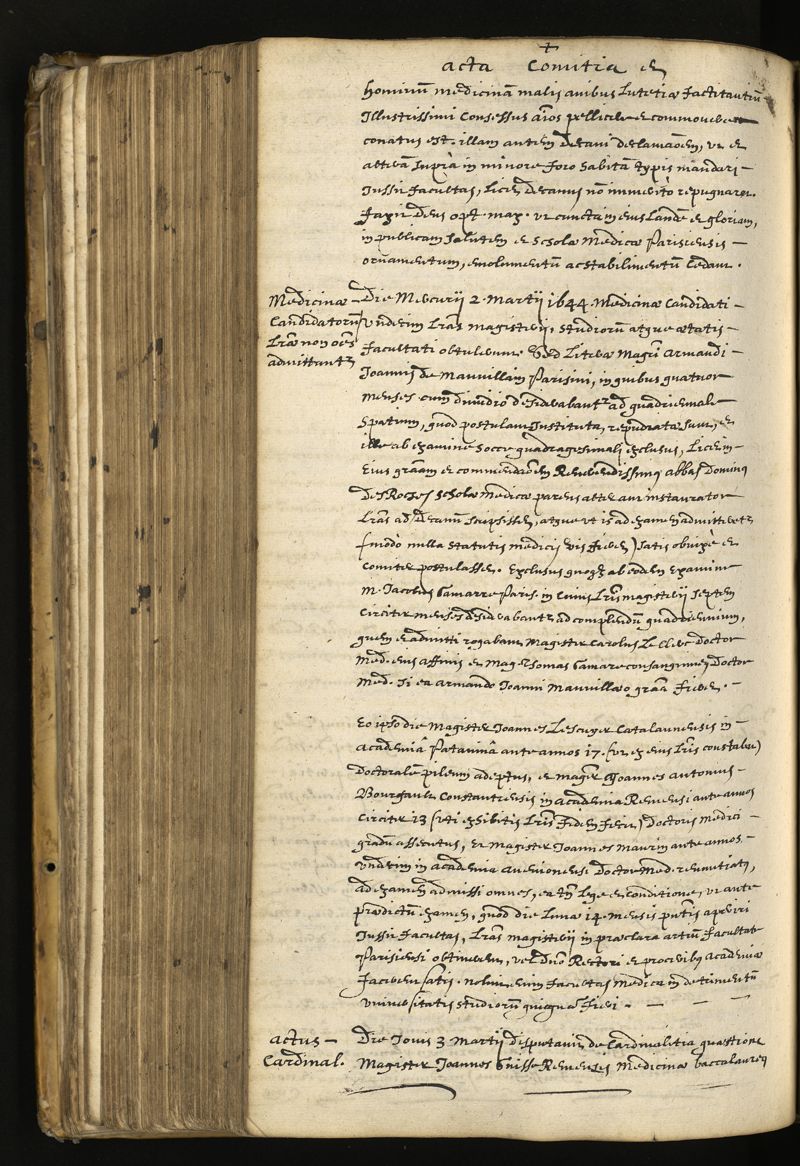 acta Comitia et
hominū medicinā malis avibus Lutetiæ factitantiū
Illustrissimi Consessus aīos pellicere et commovere
conatus est. illam autem decani declamaōem, ut et
alteram supra in minore foro habitā typis mandari
Jussit facultas, licet decanus nō immerito repugnaret.
faxit deus opt. max. ut cuncta in eius laudē et gloriam,
in publicam salutem et scholæ Medicæ Parisiensis
ornamentum, emolumentū ac stabilimentū cedant.
Medicinæ
Candidatorū
Lr̄æ non oēs
admittantr
Die Mercurij 2. Martij 1644. Medicinæ Candidati
undecim Lrās magisterij, studiorū atque ætatis
facultati obtulerunt. Sed Literæ Magrī Armandi
Joannis de Mauvillain Parisini, in quibus quatuor
menses cum dimidio desiderabantr ad quadriennale
spatium, quod postulant Instituta, repudiatæ sunt, et
ille ab examine hocce quadragesimali exclusus, licet in
eius grāam et commendāōem Reverendissimus abbas Dominus
Des Roches scholæ Medicæ parens alter aut instaurator
Lrās ad decanū scripsisset, atque ut is ad examen admitteretr
(modo nulla statutis medicis vis fieret) satis obnixè et
comiter postulasset. Exclusus quoq; ab eodem examine
M. Jacobus Gamarre Paris. in cuius Lrīs magisterij septem
circiter menses desiderabantr ad complendū quadriennium,
quem et admitti rogabant Magister Carolus Le Clerc Doctor
Med. eius affinis et Mag. Thomas Gamare consanguineus Doctor
Med. si ea Armando Joanni Mauvillæo grāa fieret.
Eo ipso die Magister Joannes Lescuyer Catalaunensis in
Academiâ Patavinâ ante annos 17. (ut ex eius Lrīs constabat)
Doctoralē pileum adeptus, et magēr Joannes Antonius
Bourgault Constantiensis in Academia Remensi ante annos
circiter 13 (uti exhibitis Lrīs fidem fecit) Doctoris Medici
gradū assecutus, et Magister Joannes Maurin ante annos
undecim in academia avenionensi Doctor Med. renuntiatus,
ad examen admissi omnes, ea tn̄ lege et conditione, ut ante
prædictū examen, quod die Lunæ 14 mensis pn̄tis aperiri
Jussit facultas, Lrās magisterij in præclara artiū facultate
Parisiensi obtinerent, vel dn̄o Rectori et proceribus Academiæ
facerent satis. noluit enim facultas Medica in detrimentū
universitatis studiorū quicquā fieri.
actus
Cardinal.
Die Jovis 3 Martij disputavit de Cardinalitia quæstione
Magister Joannes Remensis Medicinæ baccalaureus